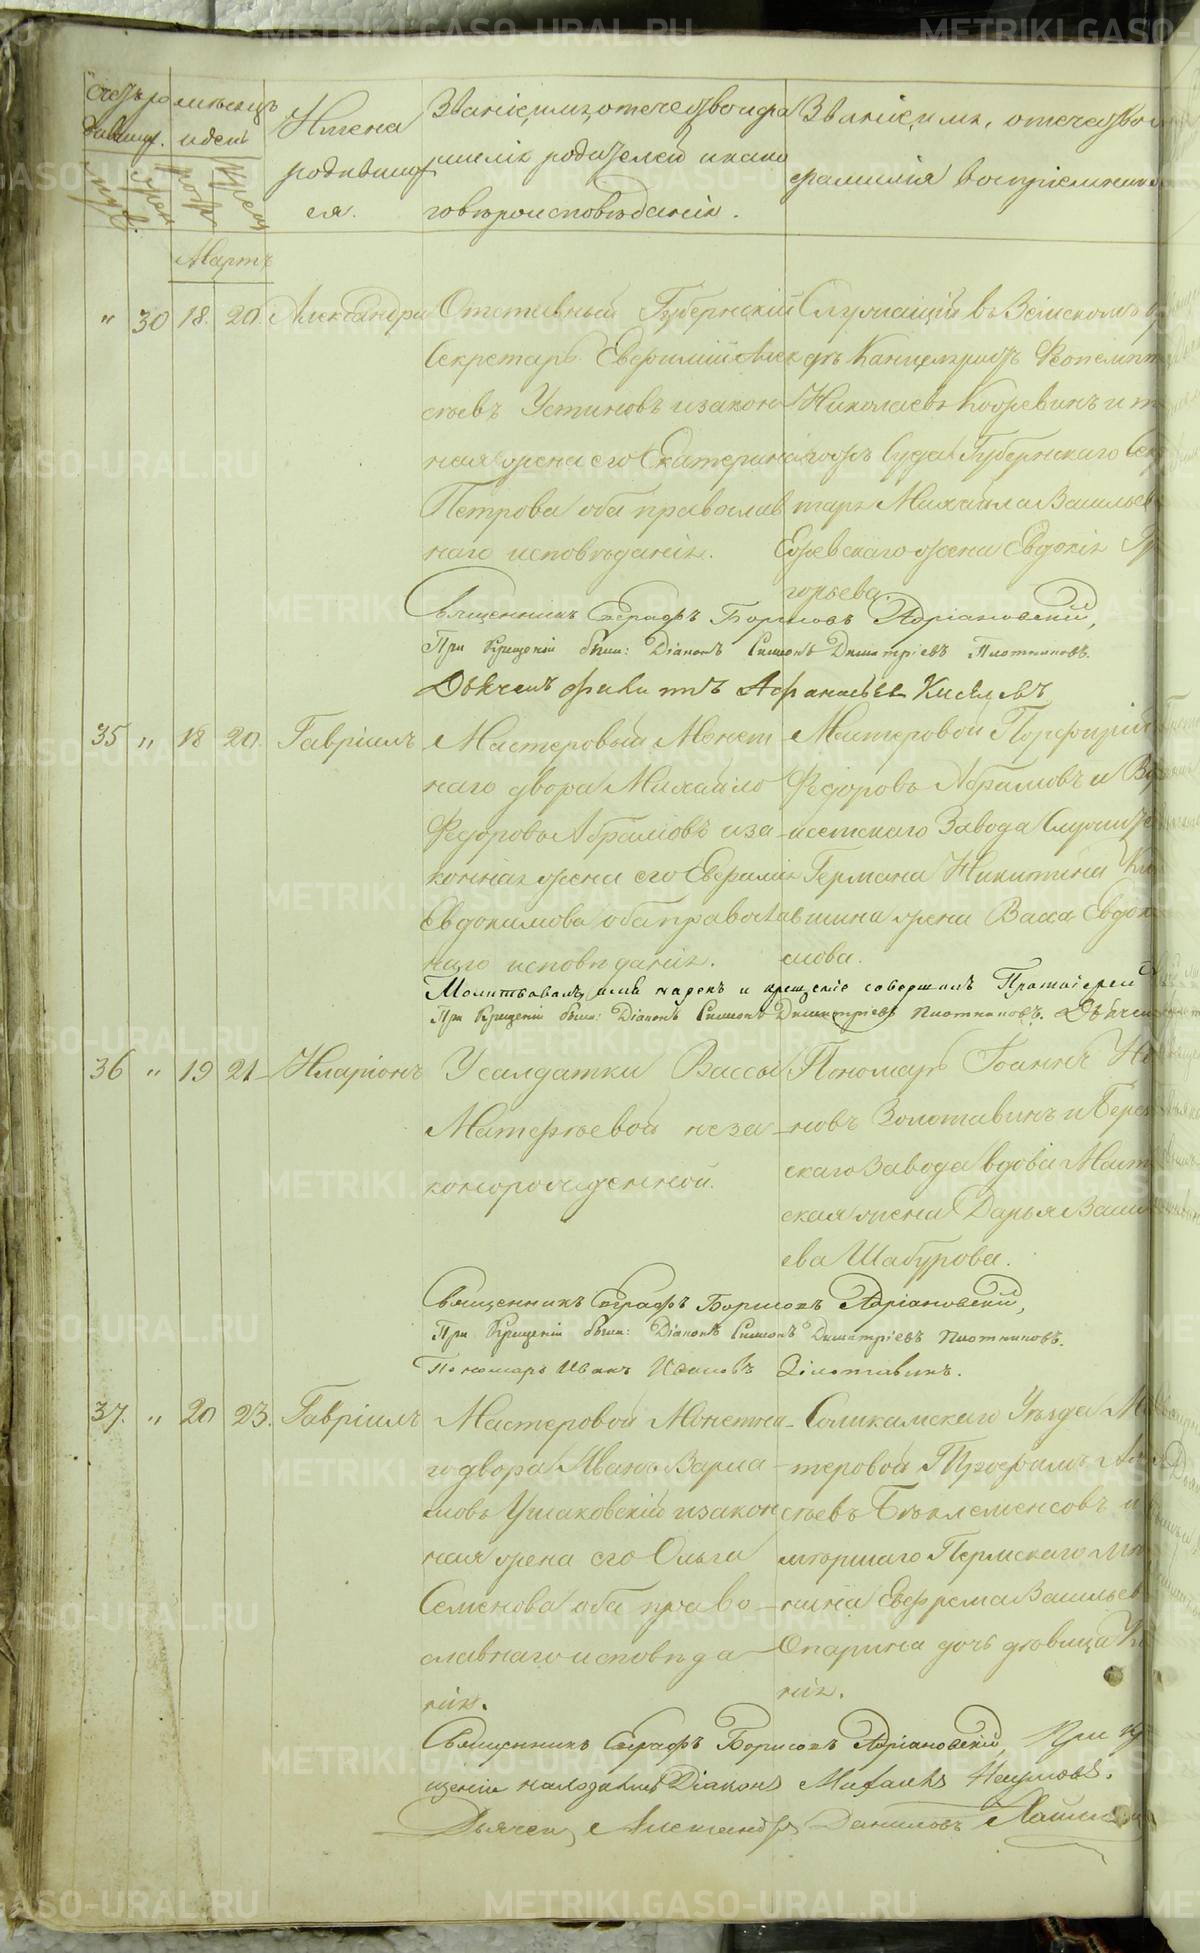 METRIKI.GASO-URAL.RU
Счетъ ро
дивших.
муж.
жен.
мѣсяцъ
и день
рожд.
крещ.
Имена
родивших
ся.
Званіе, имя, отечество и фа
милія родителей и како
го вѣроисповѣданія.
Званіе, имя, отечество
фамилія воспріемник
Мартъ
" 30 18. 20. Александра
Отставный Губернскій
Секретарь Евфимій Алек
сѣевъ Устиновъ и закон
ная жена его Екатерина
Петрова оба православ
наго исповѣданія.
Служащій въ Земскомъ
дѣ Канцеляристъ
Николаевъ Косревинъ и
тогожъ Суда Губернскаго Сек
таря Михаила Васильев
жена Евдокія Гр
горьева.
Священникъ Евграфъ Борисовъ Адріановскій,
При Крещеніи были: Діаконъ Симеонъ Димитріевъ Плотниковъ.
Дьячекъ Афанасьевъ Киселевъ
35 " 18 20. Гавріилъ
Мастеровый Монет
наго двора Михайло
Федоровъ Абрамовъ и за
конная жена его Евфимія
Евдокимова оба православ
наго исповѣданія.
Мастеровой Порфирій
Федоровъ Абрамовъ и В
исетскаго Завода Служите
Германа Никитина К
шина жена Васса Евдок
имова.
Молитвовалъ, имя нарекъ и крещеніе совершилъ Протоіерей
При Крещеніи были: Діаконъ Симеонъ Димитріевъ Плотниковъ. Дьячек
36 " 19 21 Иларіонъ
У салдатки Вассы
Матфѣевой неза
коннорожденной.
Пономарь Іоаннъ И
новъ Золотавинъ и Берез
скаго Завода вдова Маст
ская жена Дарья Васил
ева Шабурова.
Священникъ Евграфъ Борисовъ Адріановскій,
При Крещеніи были: Діаконъ Симеонъ Димитріевъ Плотниковъ.
Пономарь Иванъ Ивановъ Золотавинъ.
37. " 20 23. Гавріилъ
Мастеровой Монетна
го двора Иванъ Варла
мовъ Ушаковскій и закон
ная жена его Ольга
Семенова оба право
славнаго исповѣда
нія.
Соликамскаго Уѣзда М
теровой Трофимъ Ал
сѣевъ Беклеменсовъ и
умершаго Пермскаго
нина Евфрема Васильев
Опарина дочь дѣвица
нія.
Священникъ Евграфъ Борисовъ Адріановскій, При Кр
щеніи находились Діаконъ Михаилъ
Дьячекъ Александръ Даниловъ